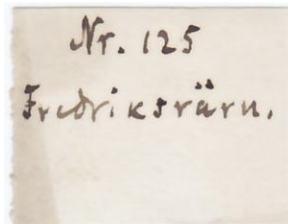 Nr. 125
Fredriksvärn.